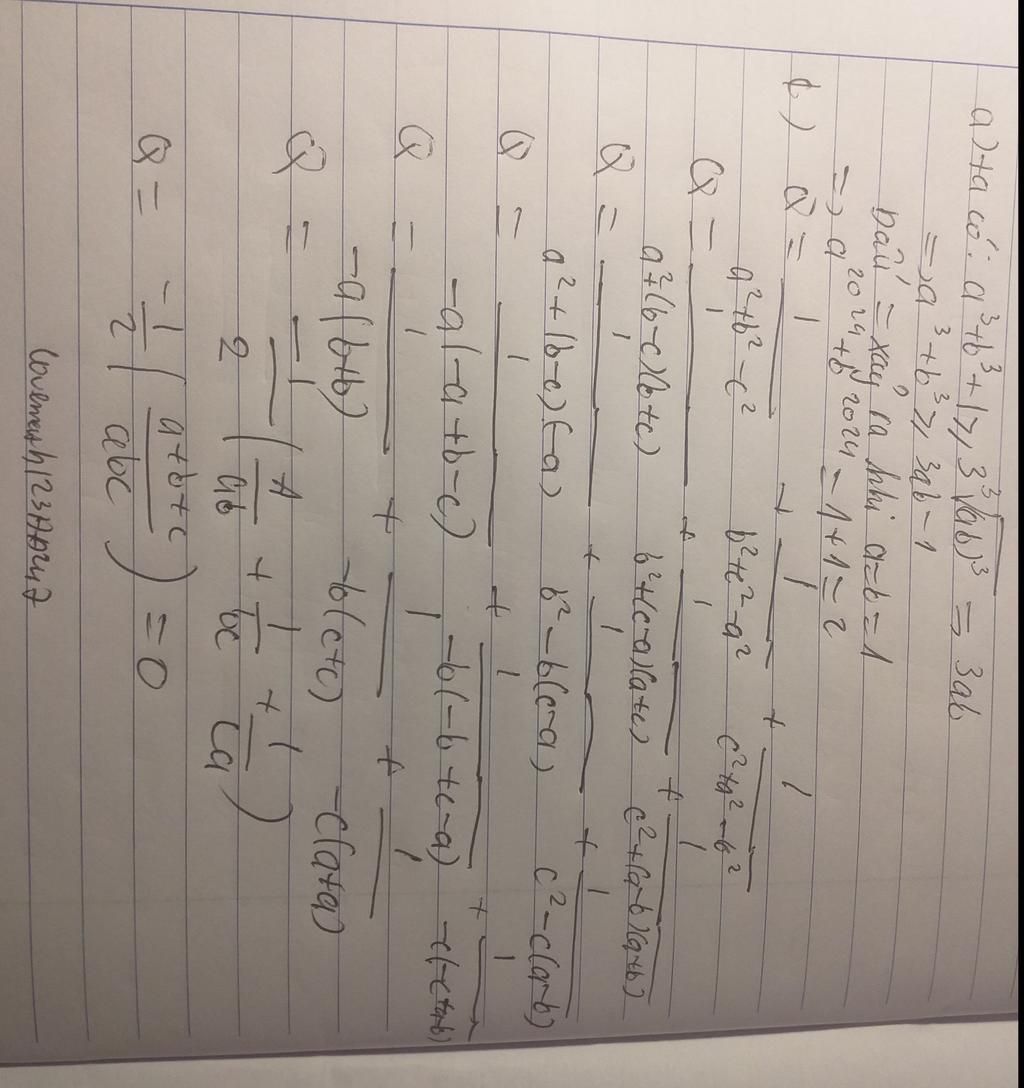 a) ta có: a³ + b³ + 1 ≥ 3∛(ab)³ = 3ab
=> a³ + b³ ≥ 3ab - 1
Dấu = xảy ra khi a = b = 1
=> a²⁰²¹ + b²⁰²¹ = 1 + 1 = 2
b) Q = 1/(a² + b² - c²) + 1/(b² + c² - a²) + 1/(c² + a² - b²)
Q = 1/(a² + (b - c)(b + c)) + 1/(b² + (c - a)(a + c)) + 1/(c² + (a - b)(a + b))
Q = 1/(a² + (b - c)(-a)) + 1/(b² - b(c - a)) + 1/(c² - c(a - b))
Q = 1/(-a(-a + b - c)) + 1/(-b(-b + c - a)) + 1/(-c(-c + a - b))
Q = 1/(-a(b + b)) + 1/(-b(c + c)) + 1/(-c(a + a))
Q = -1/2 (1/ab + 1/bc + 1/ca)
Q = -1/2 ((a + b + c)/abc) = 0